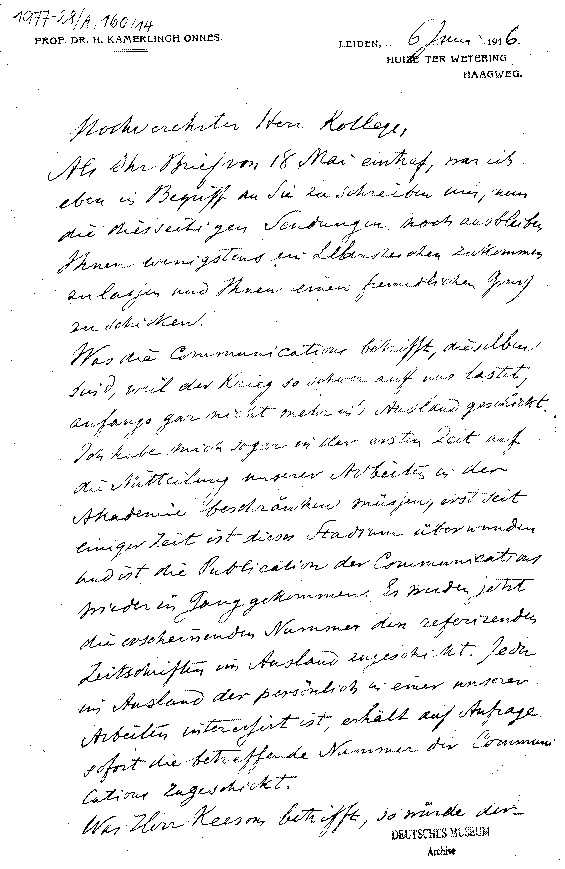 1977-28/A, 160/14
PROF. DR. H. KAMERLINGH ONNES.
LEIDEN, 6 Juni 1916.
HUIZE TER WETERING
HAAGWEG.
Hochverehrter Herr Kollege,
Als Ihr Brief von 18 Mai eintraf, war ich
eben in Begriff an Sie zu schreiben um, nun
die diesseitigen Sendungen noch ausbleiben
Ihnen wenigstens ein Lebenszeichen zukommen
zu lassen und Ihnen einen freundlichen Gruss
zu schicken.
Was die Communications betrifft, dieselben
sind, weil der Krieg so schwer auf uns lastet,
anfangs gar nicht mehr in's Ausland geschickt.
Ich habe mich sogar in der ersten Zeit auf
die Mitteilung unserer Arbeiten in der
Akademie beschränken müssen, erst seit
einiger Zeit ist dieses Stadium überwunden
und ist die Publication der Communications
wieder in Gang gekommen. Es werden jetzt
die erscheinenden Nummer den referirenden
Zeitschriften im Ausland zugeschickt. Jeder
im Ausland der persönlich in einer unserer
Arbeiten interessirt ist, erhält auf Anfrage
sofort die betreffende Nummer der Communi
cations zugeschickt.
Was Herr Keesom betrifft, so würde der
DEUTSCHES MUSEUM
Archive